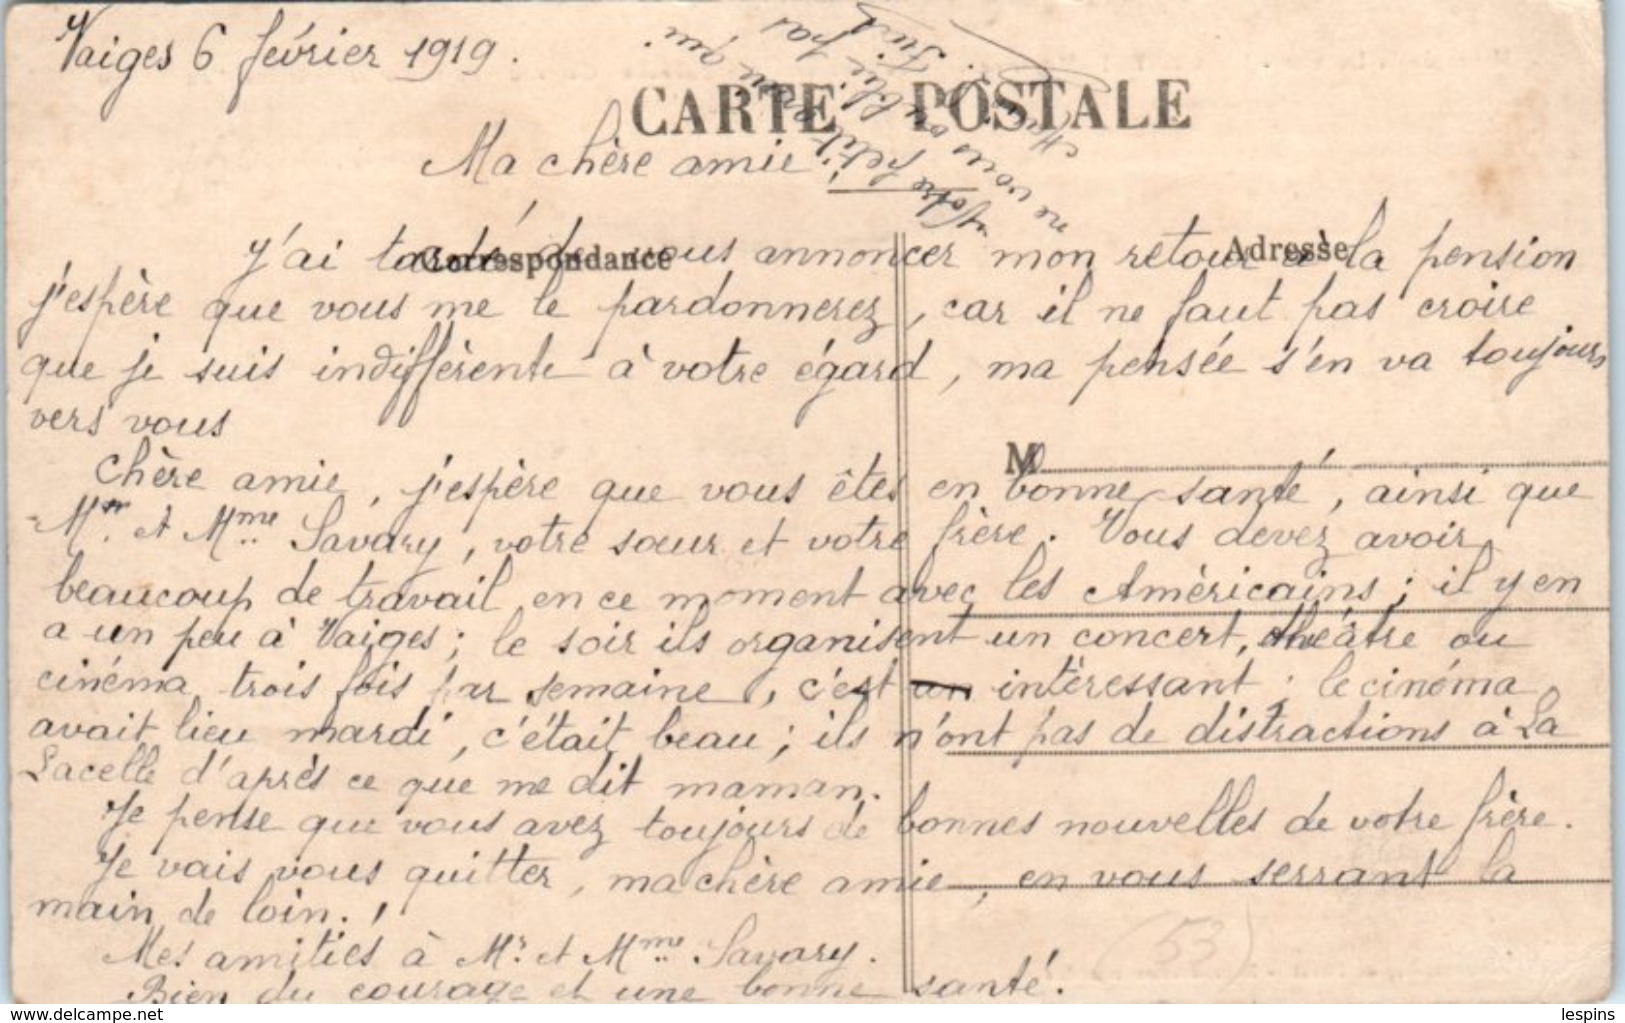 Vaiges 6 février 1919.
CARTE POSTALE
Ma chère amie
Correspondance
Adresse
J'ai tardé de vous annoncer mon retour à la pension
j'espère que vous me le pardonnerez, car il ne faut pas croire
que je suis indifférente à votre égard, ma pensée s'en va toujours
vers vous
M
Chère amie, j'espère que vous êtes en bonne santé, ainsi que
Mr. et Mme Savary, votre sœur et votre frère. Vous devez avoir
beaucoup de travail en ce moment avec les Américains; il y en
a un peu à Vaiges; le soir ils organisent un concert, théâtre ou
cinéma trois fois par semaine, c'est un intéressant; le cinéma
avait lieu mardi, c'était beau; ils n'ont pas de distractions à La
Lacelle d'après ce que me dit maman.
Je pense que vous avez toujours de bonnes nouvelles de votre frère.
Je vais vous quitter, ma chère amie, en vous serrant la
main de loin.
Mes amitiés à Mr. et Mme Savary.
Bien du courage et une bonne santé.
Votre petite amie qui
ne vous oublie pas
(53)
lespins